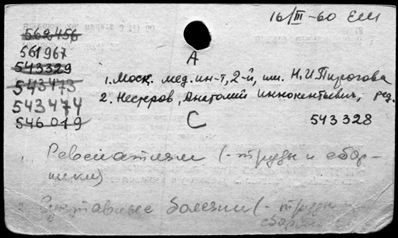 16/III-60 ЕШ
562456
561967
543329
543473
543474
546019
А
1. Моск. мед. ин-т, 2-й, им. Н.И. Пирогова
2. Нестеров, Анатолий Иннокентьевич, ред.
С
543328
1. Ревматизм (- труды и сбор-
ники)
2. Суставные болезни (- труды